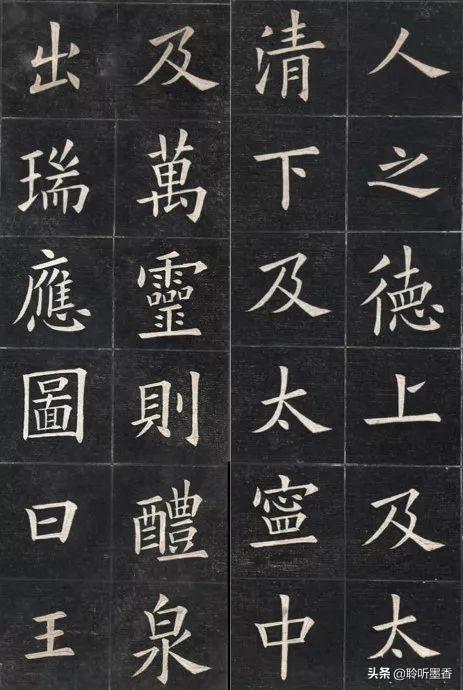 人之德上及太
清下及太寧中
及萬靈則醴泉
出瑞應圖曰王
头条 @聆听墨香